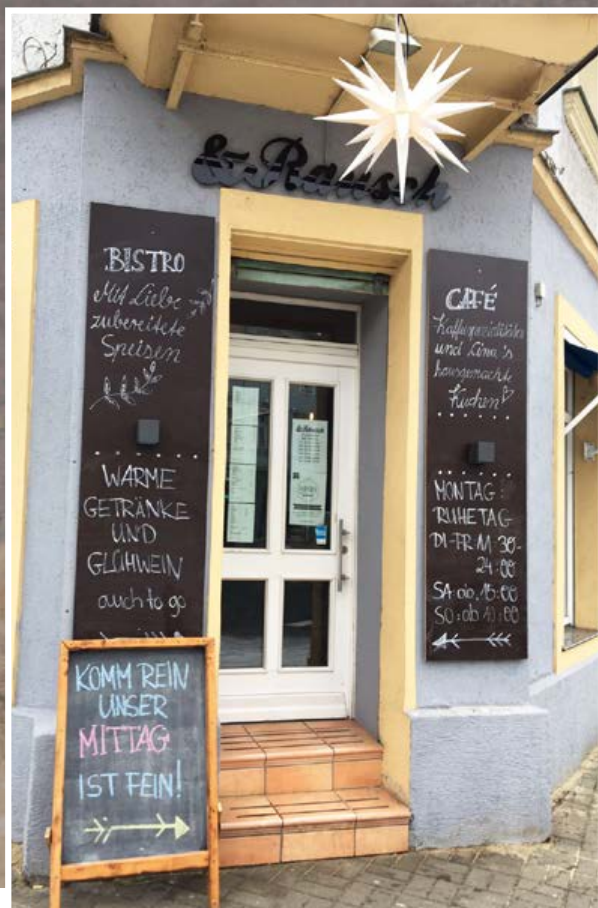 & Rausch
BISTRO
Mit Liebe
zubereitete
Speisen
WARME
GETRÄNKE
UND
GLÜHWEIN
auch to go
CAFÉ
Kaffeespezialitäten
und Lima's
hausgemachte
Kuchen
MONTAG:
RUHETAG
DI-FR: 11:30-
24:00
SO: ab 10:00
KOMM REIN
UNSER
MITTAG
IST FEIN!